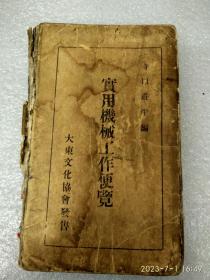 實用機械工作便覽
大東文化協會發售
2023-7-1 16:49